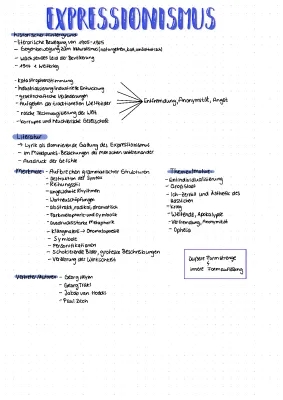 EXPRESSIONISMUS
historischer Hintergrund
- literarische Bewegung von 1905-1925
- Gegenbewegung zum Naturalismus
- wachsendes Leid der Bevölkerung
- 1914 1. Weltkrieg
- Katastrophenstimmung
- Industrialisierung/industrielle Entwicklung
- gesellschaftliche Veränderungen
- Aufgeben der traditionellen Weltbilder
- rasche Technologisierung der Welt
- korrupte und heuchlerische Gesellschaft
Entfremdung, Anonymität, Angst
Literatur
→ Lyrik als dominierende Gattung des Expressionismus
- im Mittelpunkt: Beziehung der Menschen untereinander
- Ausdruck der Gefühle
Merkmale: - Aufbrechen grammatischer Strukturen
- Destruktion der Syntax
- Reihungsstil
- ungewohnte Rhythmen
- Wortneuschöpfungen
- ekstatisch, radikal, dramatisch
- Farbmetaphorik und Symbolik
- ausdrucksstarke Metaphorik
- Klangmalerei → Onomatopoesie
- Symbole
- Personifikationen
- schockierende Bilder, groteske Beschreibungen
- Verzerrung der Wirklichkeit
Themen/Motive
- Entindividualisierung
- Großstadt
- Ich-Zerfall und Ästhetik des Hässlichen
- Krieg
- Weltende, Apokalypse
- Entfremdung, Anonymität
- Ophelia
äußere Formstrenge
innere Formauflösung
Vertreter/Autoren: - Georg Heym
- Georg Trakl
- Jakob van Hoddis
- Paul Zech